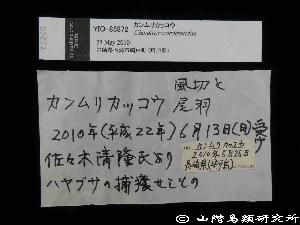 YIO-65872 カンムリカッコウ
Clamator coromandus
29 May 2010
風切と
カンムリカッコウ 尾羽
2010年(平成22年)6月13日(日)受け
佐々木清隆氏より
ハヤブサの捕獲せしもの
カンムリカッコウ
2010年5月28日
長崎県
© 山階鳥類研究所